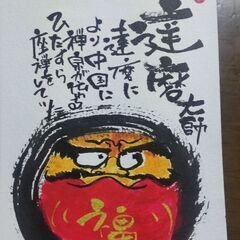 達磨大師
達磨に
より中国に
禅宗が
ひたすら
座禅をして
福